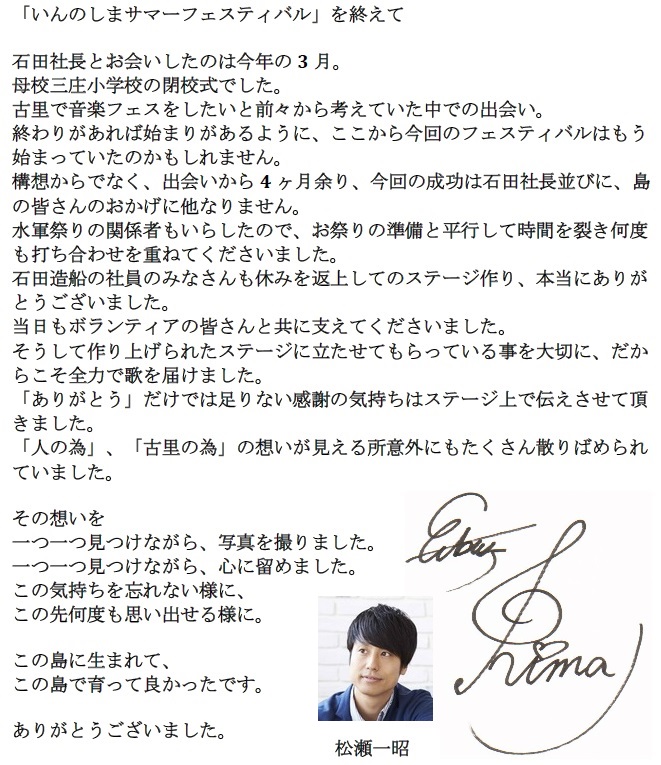 「いんのしまサマーフェスティバル」を終えて
石田社長とお会いしたのは今年の 3 月。
母校三庄小学校の閉校式でした。
古里で音楽フェスをしたいと前々から考えていた中での出会い。
終わりがあれば始まりがあるように、ここから今回のフェスティバルはもう
始まっていたのかもしれません。
構想からでなく、出会いから 4 ヶ月余り、今回の成功は石田社長並びに、島
の皆さんのおかげに他なりません。
水軍祭りの関係者もいらしたので、お祭りの準備と平行して時間を裂き何度
も打ち合わせを重ねてくださいました。
石田造船の社員のみなさんも休みを返上してのステージ作り、本当にありが
とうございました。
当日もボランティアの皆さんと共に支えてくださいました。
そうして作り上げられたステージに立たせてもらっている事を大切に、だか
らこそ全力で歌を届けました。
「ありがとう」だけでは足りない感謝の気持ちはステージ上で伝えさせて頂
きました。
「人の為」、「古里の為」の想いが見える所意外にもたくさん散りばめられ
ていました。
その想いを
一つ一つ見つけながら、写真を撮りました。
一つ一つ見つけながら、心に留めました。
この気持ちを忘れない様に、
この先何度も思い出せる様に。
この島に生まれて、
この島で育って良かったです。
ありがとうございました。
松瀬一昭